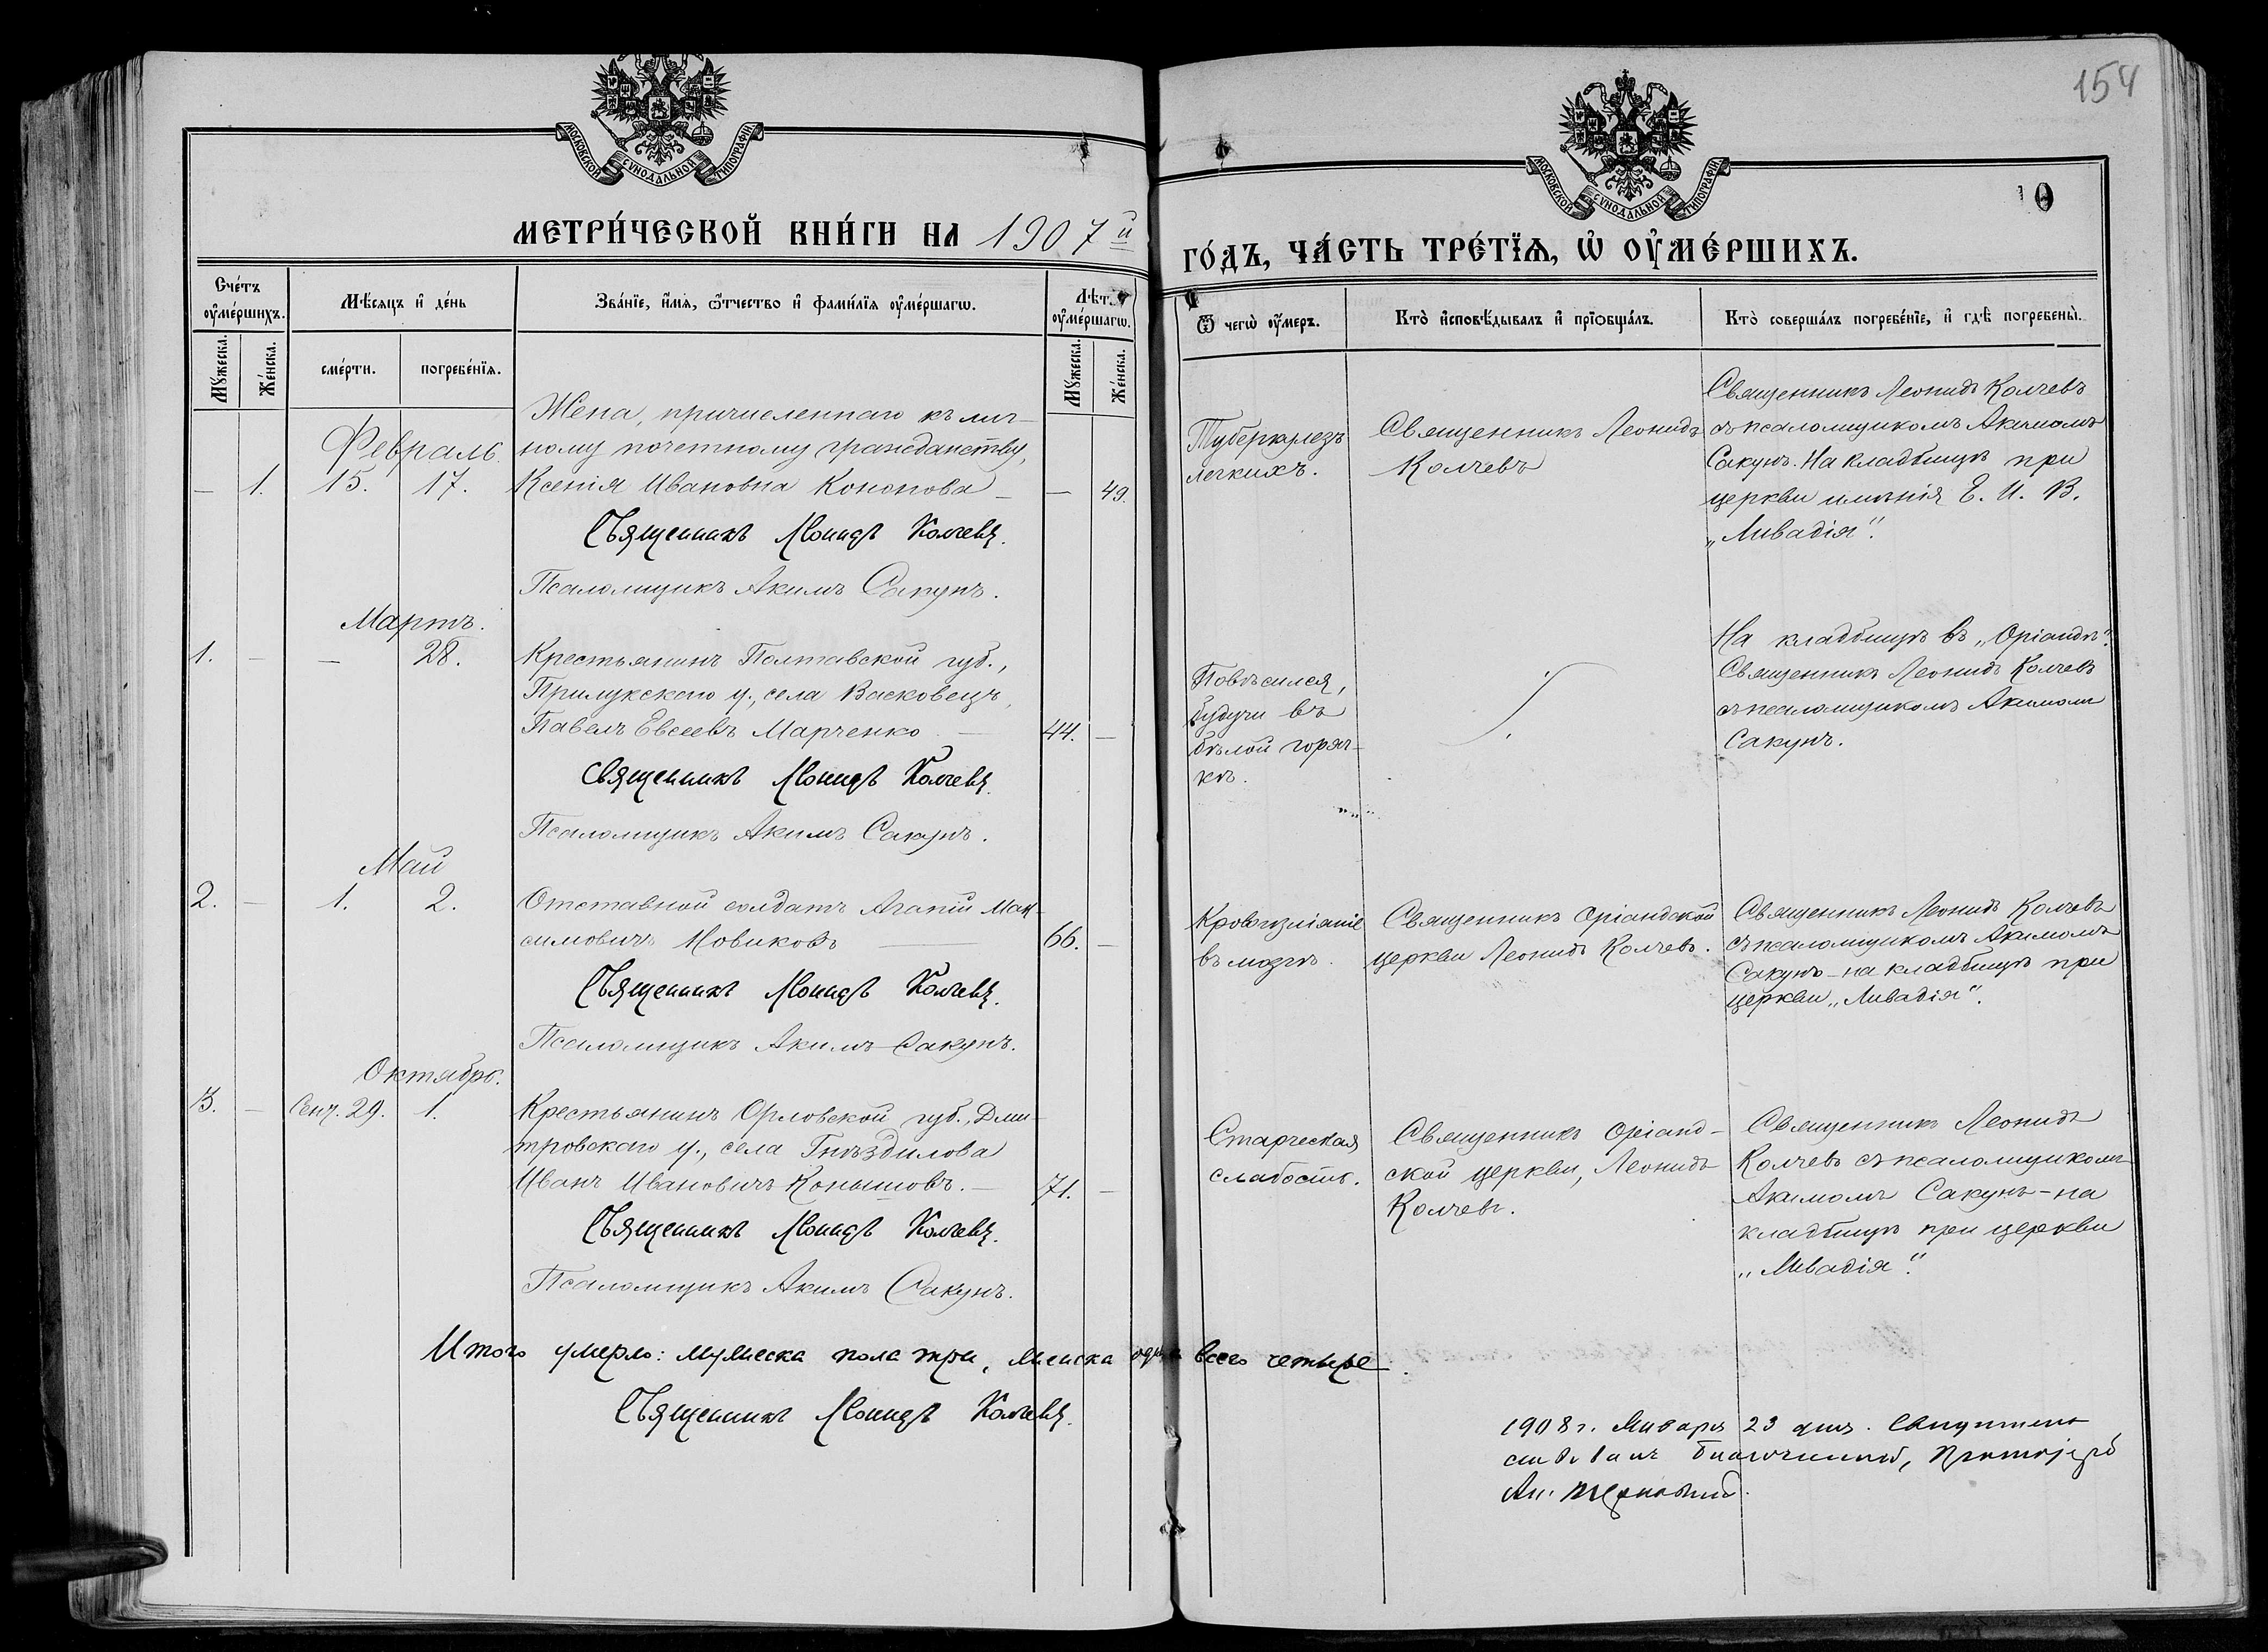 154
МОСКОВСКОЙ СѴНОДАЛЬНОЙ ТИПОГРАФІИ
МОСКОВСКОЙ СѴНОДАЛЬНОЙ ТИПОГРАФІИ
МЕТРИ́ЧЕСКОЙ КНИ́ГИ НА 1907й
ГО́ДЪ, ЧА́СТЬ ТРЕ́ТЇѦ, Ѡ҆ ОУ҆МЕ́РШИХЪ.
Сче́тъ оу҆ме́ршихъ.
Мѣ́сяцъ и҆ де́нь
Зва́нїе, и҆́мѧ, ѻ҆́тчество и҆ фами́лїѧ оу҆ме́ршагѡ.
Лѣтъ оу҆ме́ршагѡ.
Ѿ чегѡ̀ оу҆́меръ.
Кто̀ и҆сповѣ́дывалъ и҆ прїѡбща́лъ.
Кто̀ соверша́лъ погребе́нїе, и҆ гдѣ̀ погребены̀.
Мꙋ́жеска.
Же́нска.
сме́рти.
погребе́нїѧ.
Мꙋ́жеска.
Же́нска.
Февраль.
— 1. 15. 17.
Жена, причисленнаго къ лич-
ному почетному гражданству,
Ксенія Ивановна Кононова — — 49.
Священникъ Леонидъ Колчевъ.
Псаломщикъ Акимъ Сакунъ.
Туберкулезъ
легкихъ.
Священникъ Леонидъ
Колчевъ
Священникъ Леонидъ Колчевъ
съ псаломщикомъ Акимомъ
Сакунъ. На кладбищѣ при
церкви имѣнія Е. И. В.
„Ливадія“.
Мартъ.
1. — — 28.
Крестьянинъ Полтавской губ.,
Прилукскаго у., села Васковецъ,
Павелъ Евсеевъ Марченко — 44. —
Священникъ Леонидъ Колчевъ.
Псаломщикъ Акимъ Сакунъ.
Повѣсился,
будучи въ
бѣлой горяч-
кѣ.
На кладбищѣ въ „Оріандѣ“.
Священникъ Леонидъ Колчевъ
съ псаломщикомъ Акимомъ
Сакунъ.
Май
2. — 1. 2.
Отставной солдатъ Агапій Мак-
симовичъ Новиковъ — 66. —
Священникъ Леонидъ Колчевъ.
Псаломщикъ Акимъ Сакунъ.
Кровоизліяніе
въ мозгъ.
Священникъ Оріандской
церкви Леонидъ Колчевъ.
Священникъ Леонидъ Колчевъ
съ псаломщикомъ Акимомъ
Сакунъ - на кладбищѣ при
церкви „Ливадія“.
Октябрь.
3. — Сент. 29. 1.
Крестьянинъ Орловской губ., Дми-
тровскаго у., села Гнѣздилова
Иванъ Ивановичъ Конышовъ. — 71. —
Священникъ Леонидъ Колчевъ.
Псаломщикъ Акимъ Сакунъ.
Старческая
слабость.
Священникъ Оріанд-
ской церкви, Леонидъ
Колчевъ.
Священникъ Леонидъ
Колчевъ съ псаломщикомъ
Акимомъ Сакунъ - на
кладбищѣ при церкви
„Ливадія“.
Итого умерло: мужеска пола три, женска одна всего четыре.
Священникъ Леонидъ Колчевъ.
1908 г. Января 23 дня.
благочинный, Протоіерей